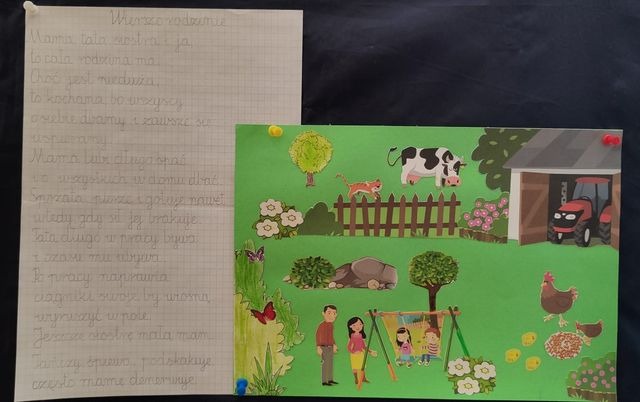 Wiersze rodzinne
Mama, tata, siostra i ja,
to cała rodzina ma.
Choć jest nieduża,
to kochana, bo wszyscy
o siebie dbamy i zawsze się
wspieramy.
Mama lubi długo spać
i wszystkich w domu
Sprząta, pierze i gotuje nawet
wtedy, gdy sił jej brakuje.
Tata długo w pracy bywa
i czasu mu ubywa.
Po pracy naprawia
ciągniki swoje by wiosną
wyruszyć w pole.
Jeszcze siostra mam,
Tańczy, śpiewa skakuje
często mamę denerwuje.